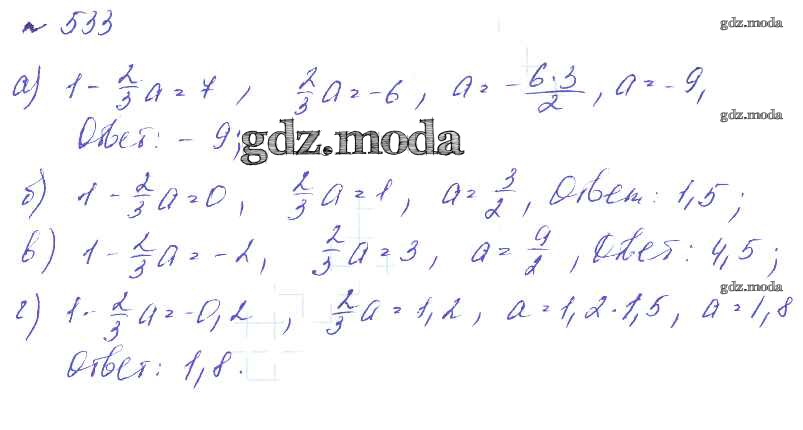 № 533
gdz.moda
а) 1 - 2/3 a = 7, 2/3 a = -6, a = - 6·3/2, a = -9,
gdz.moda
Ответ: - 9;
gdz.moda
б) 1 - 2/3 a = 0, 2/3 a = 1, a = 3/2, Ответ: 1,5;
gdz.moda
в) 1 - 2/3 a = -2, 2/3 a = 3, a = 9/2, Ответ: 4,5;
gdz.moda
г) 1 - 2/3 a = -0,2, 2/3 a = 1,2, a = 1,2·1,5, a = 1,8
Ответ: 1,8.
gdz.moda